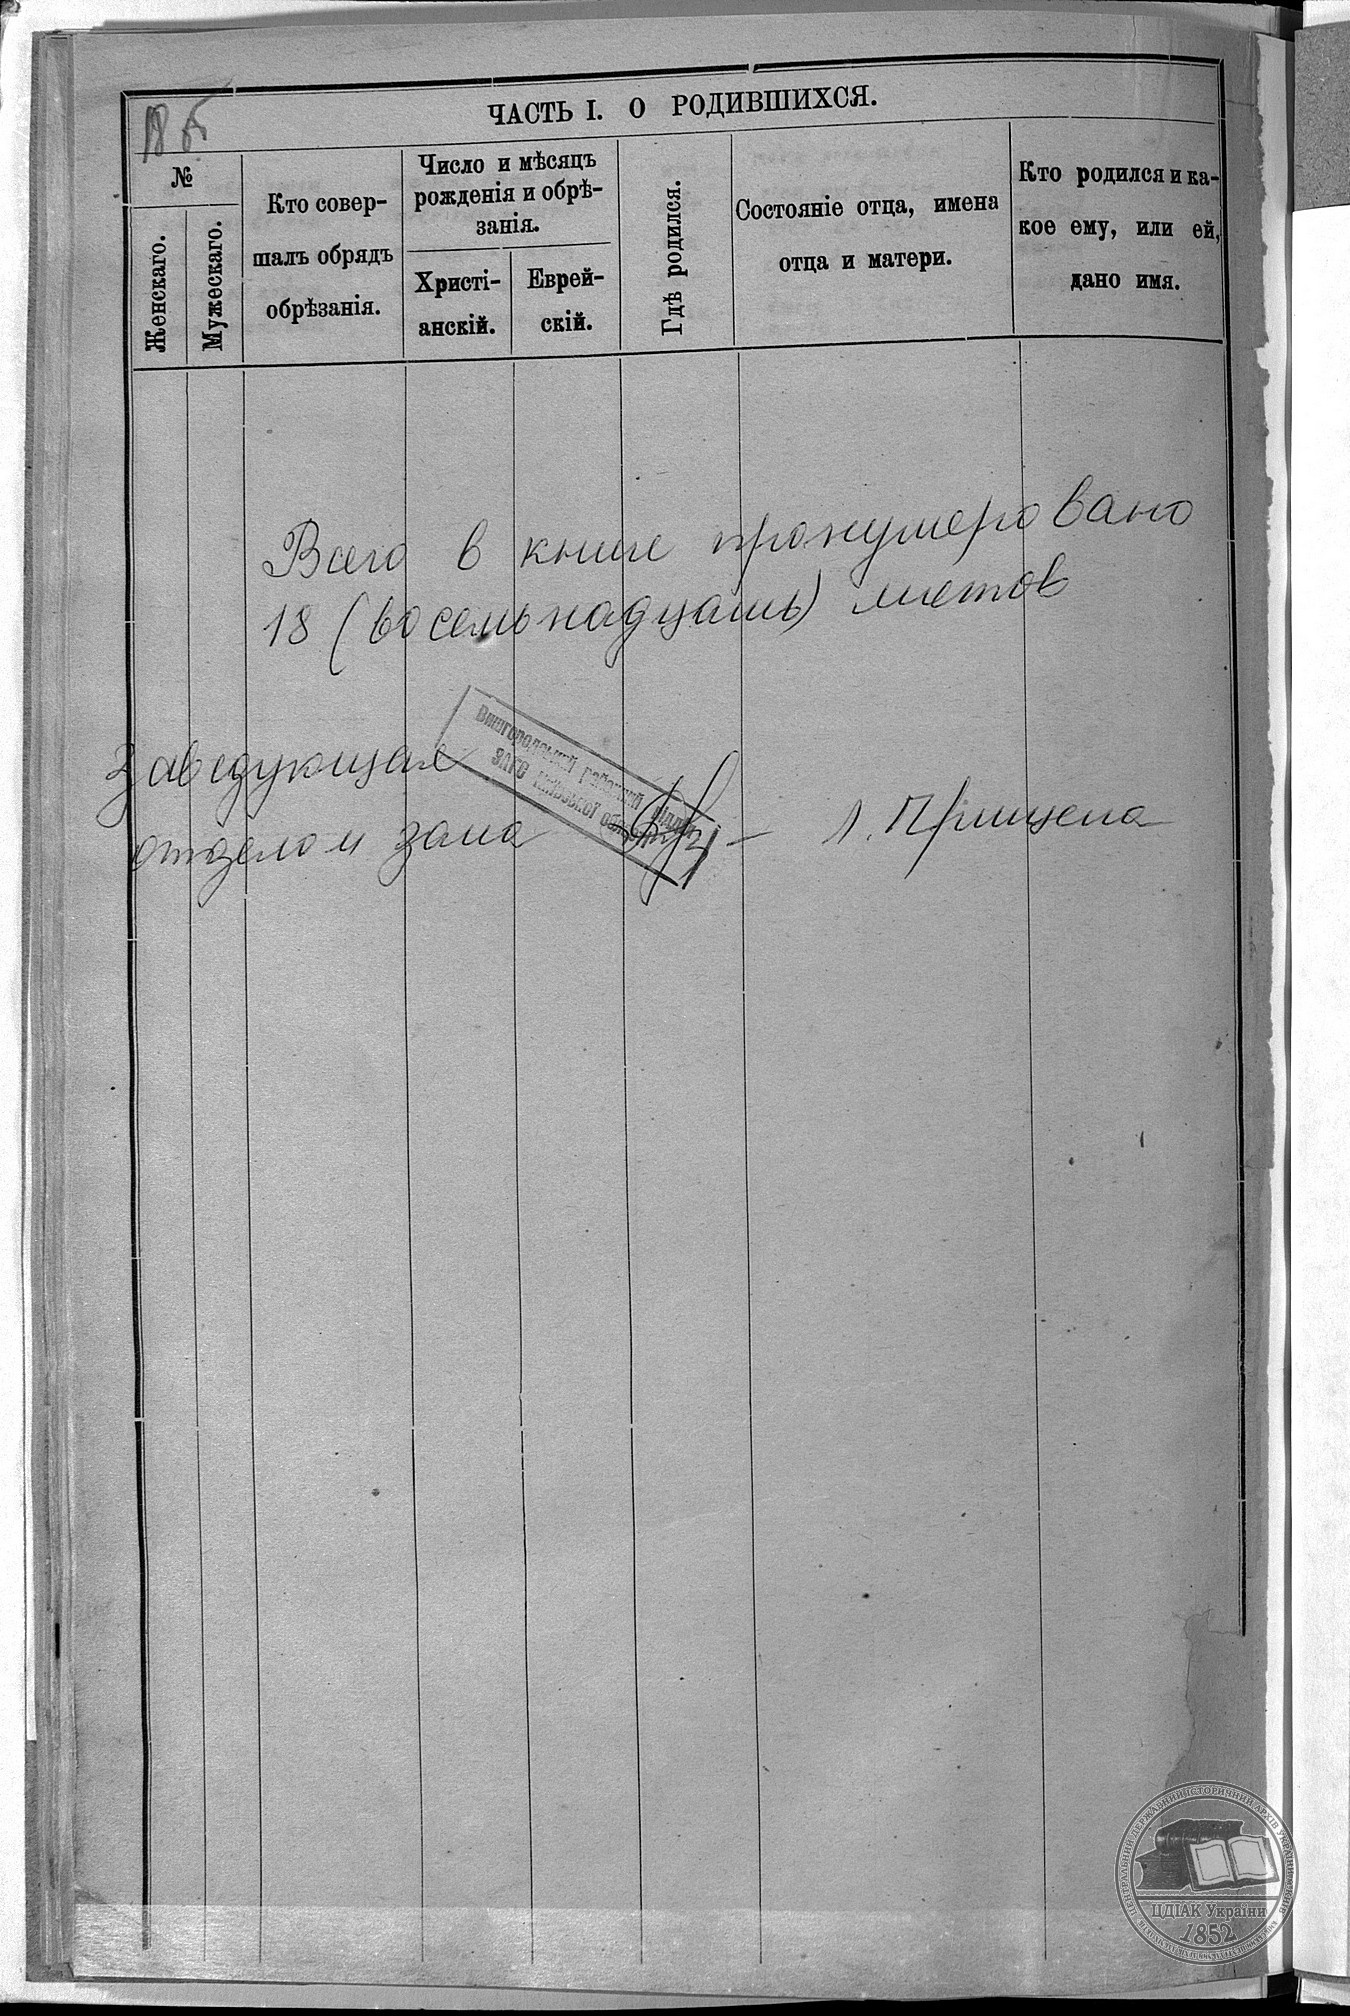 18 б
ЧАСТЬ I. О РОДИВШИХСЯ.
№
Женскаго.
Мужескаго.
Кто совер-
шалъ обрядъ
обрѣзанія.
Число и мѣсяцъ
рожденія и обрѣ-
занія.
Христі-
анскій.
Еврей-
скій.
Гдѣ родился.
Состояніе отца, имена
отца и матери.
Кто родился и ка-
кое ему, или ей,
дано имя.
Всего в книге пронумеровано
18 (восемьнадцать) листов
Заведующая
отделом загса
Л. Прищепа
Вишгородський районний відділ
ЗАГС Київської області
ЦЕНТРАЛЬНИЙ ДЕРЖАВНИЙ ІСТОРИЧНИЙ АРХІВ УКРАЇНИ, М. КИЇВ
ЦДІАК України
1852